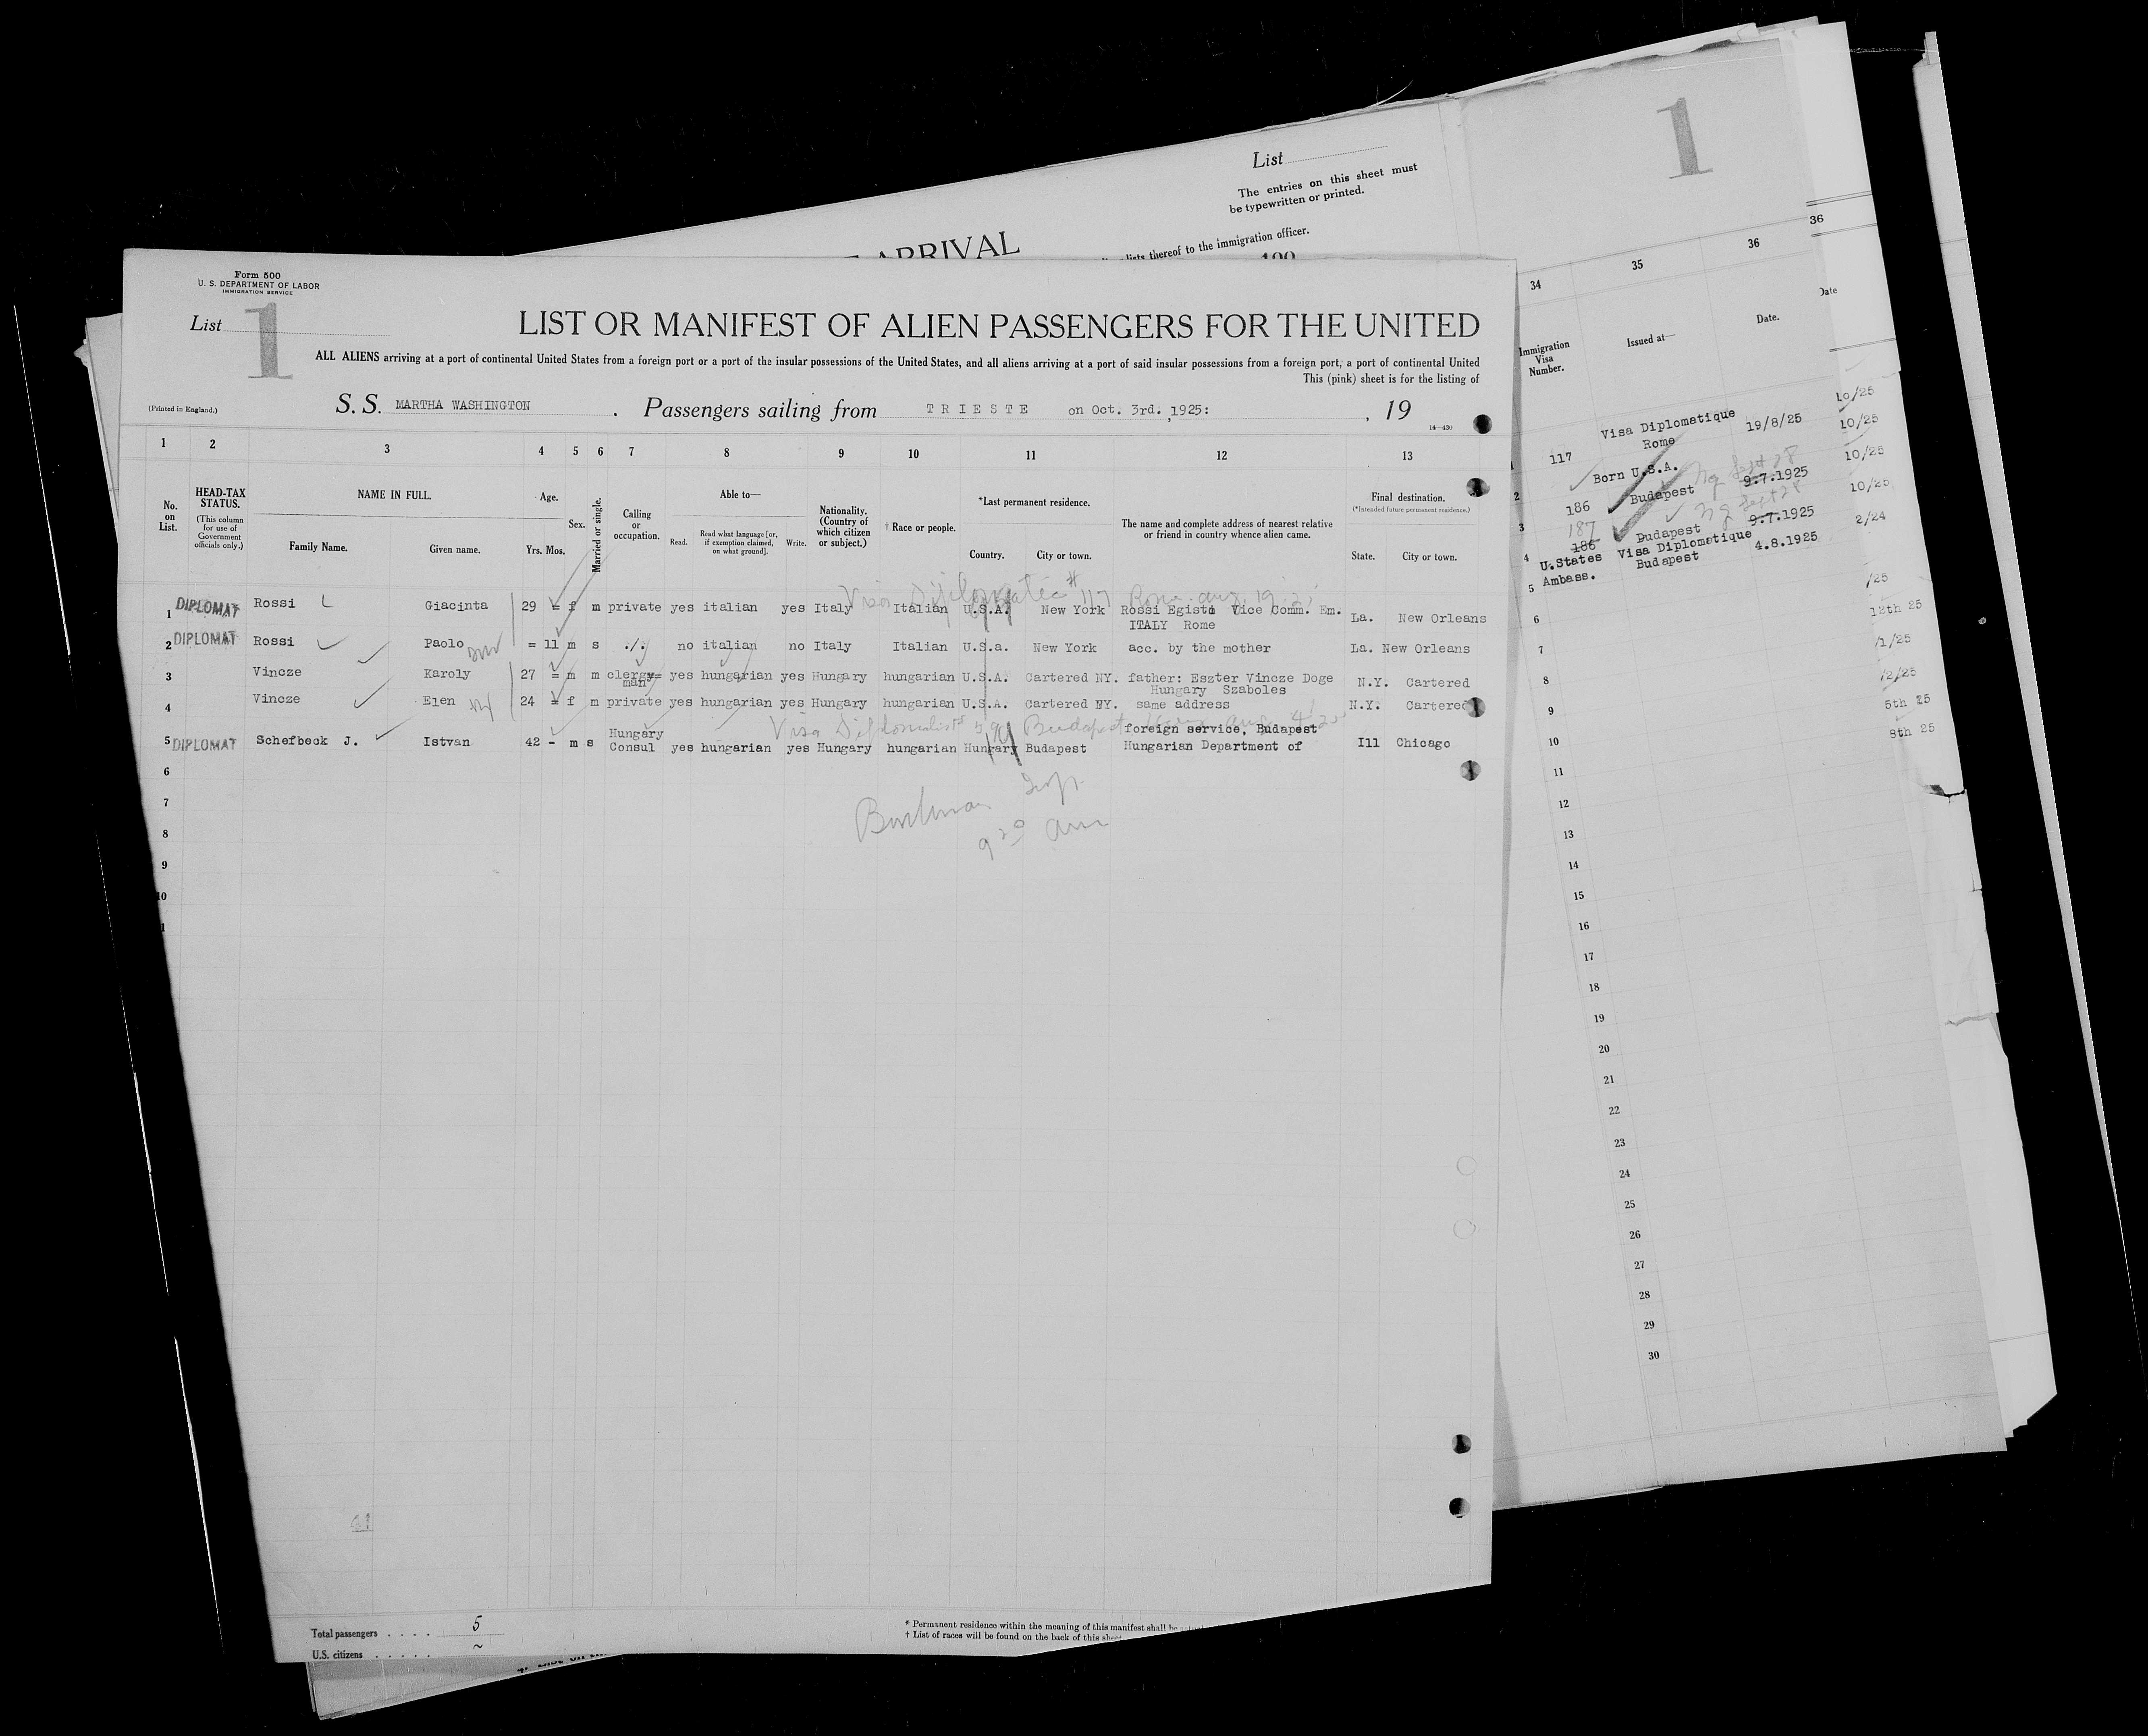 List
The entries on this sheet must
be typewritten or printed.
1
ARRIVAL
lists thereof to the immigration officer.
Form 500
U. S. DEPARTMENT OF LABOR
IMMIGRATION SERVICE
List
1
LIST OR MANIFEST OF ALIEN PASSENGERS FOR THE UNITED
ALL ALIENS arriving at a port of continental United States from a foreign port or a port of the insular possessions of the United States, and all aliens arriving at a port of said insular possessions from a foreign port, a port of continental United
This (pink) sheet is for the listing of
(Printed in England.)
S. S. MARTHA WASHINGTON . Passengers sailing from TRIESTE on Oct. 3rd. ,1925: , 19
14—430
1 2 3 4 5 6 7 8 9 10 11 12 13
No. on List.
HEAD-TAX STATUS.
(This column for use of Government officials only.)
NAME IN FULL.
Family Name. Given name.
Age.
Yrs. Mos.
Sex.
Married or single.
Calling or occupation.
Able to—
Read. Read what language [or, if exemption claimed, on what ground]. Write.
Nationality. (Country of which citizen or subject.)
† Race or people.
*Last permanent residence.
Country. City or town.
The name and complete address of nearest relative or friend in country whence alien came.
Final destination.
(*Intended future permanent residence.)
State. City or town.
Visa Diplomatic # 117 Rome aug. 19. 25
1 DIPLOMAT Rossi Giacinta 29 = f m private yes italian yes Italy Italian U.S.A. New York Rossi Egisto Vice Comm. Em. La. New Orleans
ITALY Rome
2 DIPLOMAT Rossi Paolo = 11 m s ./. no italian no Italy Italian U.S.a. New York acc. by the mother La. New Orleans
3 Vincze Karoly 27 = m m clergy= yes hungarian yes Hungary hungarian U.S.A. Cartered NY. father: Eszter Vincze Doge N.Y. Cartered
man Hungary Szaboles
4 Vincze Elen 24 = f m private yes hungarian yes Hungary hungarian U.S.A. Cartered NY. same address N.Y. Cartered
Hungary foreign service, Budapest
5 DIPLOMAT Schefbeck J. Istvan 42 - m s Consul yes hungarian yes Hungary hungarian Hungary Budapest Hungarian Department of Ill Chicago
6
7
8
9
10
9 20 am
Total passengers . . . . 5
U.S. citizens . . . . . ~
* Permanent residence within the meaning of this manifest shall be
† List of races will be found on the back of this sheet
34 35 36
36
Immigration Visa Number.
Issued at—
Date.
Date
1 117 Visa Diplomatique 19/8/25
Rome
2 Born U.S.A.
3 186 Budapest 9.7.1925
187
4 186 Budapest 9.7.1925
5 U.States Visa Diplomatique 4.8.1925
Ambass. Budapest
6
7
8
9
10
11
12
13
14
15
16
17
18
19
20
21
22
23
24
25
26
27
28
29
30
10/25
10/25
10/25
10/25
2/24
/25
12th 25
/1/25
/2/25
5th 25
8th 25